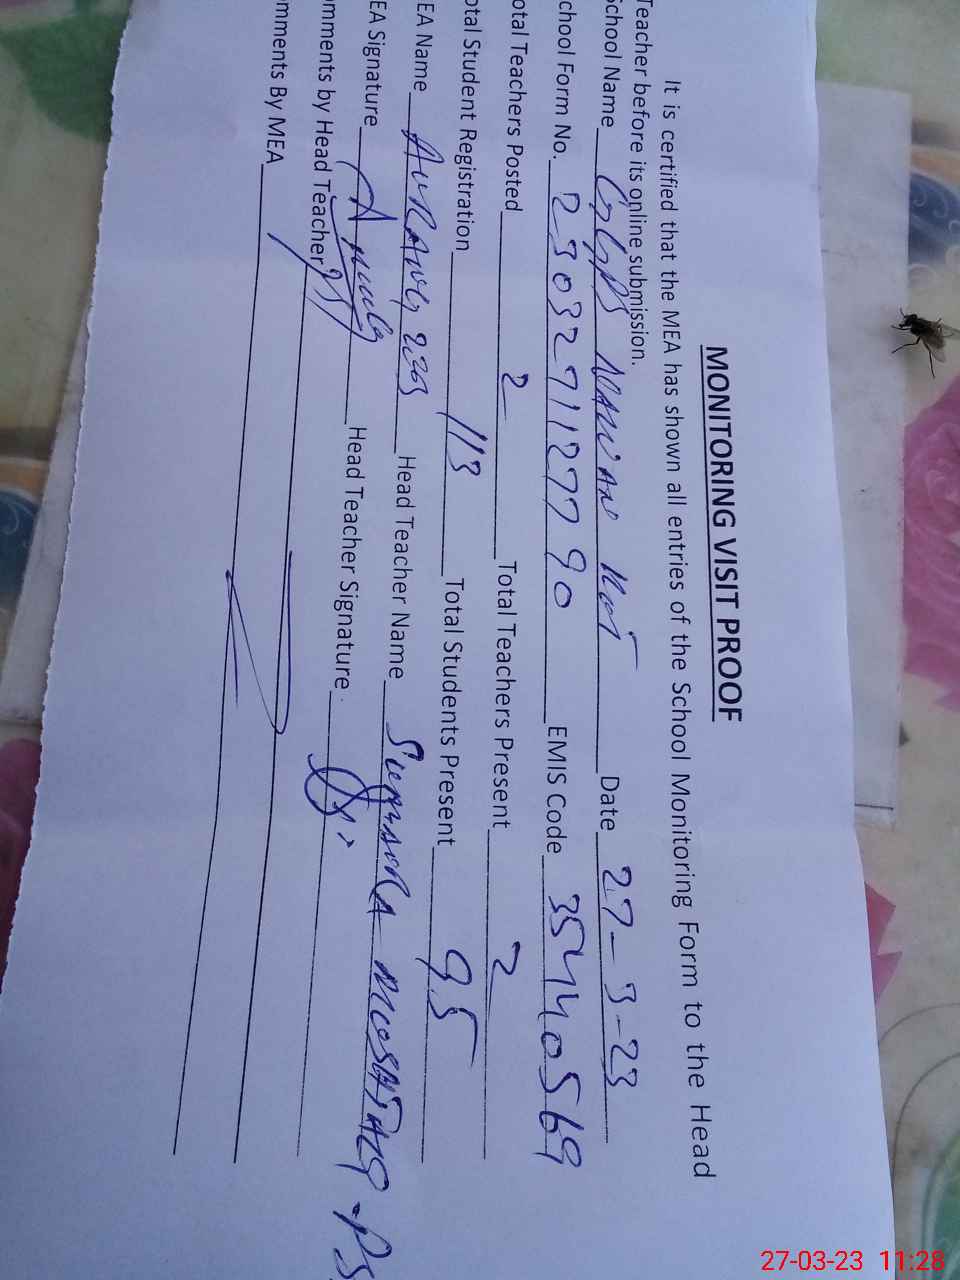 MONITORING VISIT PROOF
It is certified that the MEA has shown all entries of the School Monitoring Form to the Head
Teacher before its online submission.
School Name GGPS NAWAN KOT Date 27-3-23
chool Form No. 2303271127790 EMIS Code 35440569
otal Teachers Posted 2 Total Teachers Present 2
otal Student Registration 113 Total Students Present 95
EA Name Head Teacher Name MUSHTAQ - PS
EA Signature Head Teacher Signature
omments by Head Teacher
mments By MEA
27-03-23 11:28